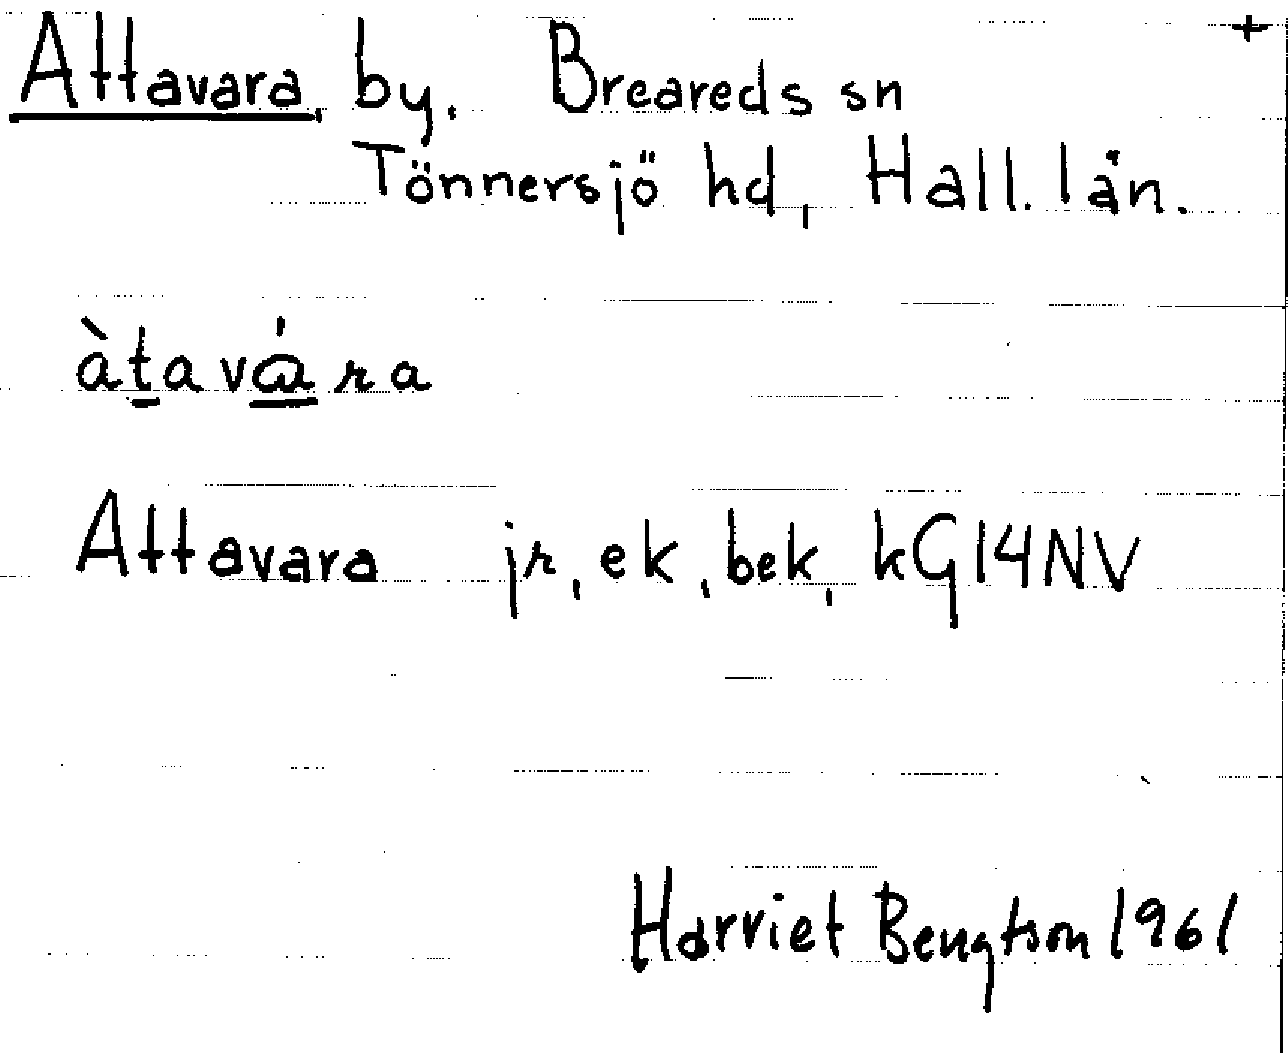 Attavara, by. Breareds sn +
Tönnersjö hd, Hall. län.
àtavára
Attavara jr, ek, bek, kG14NV
Harriet Bengtson 1961